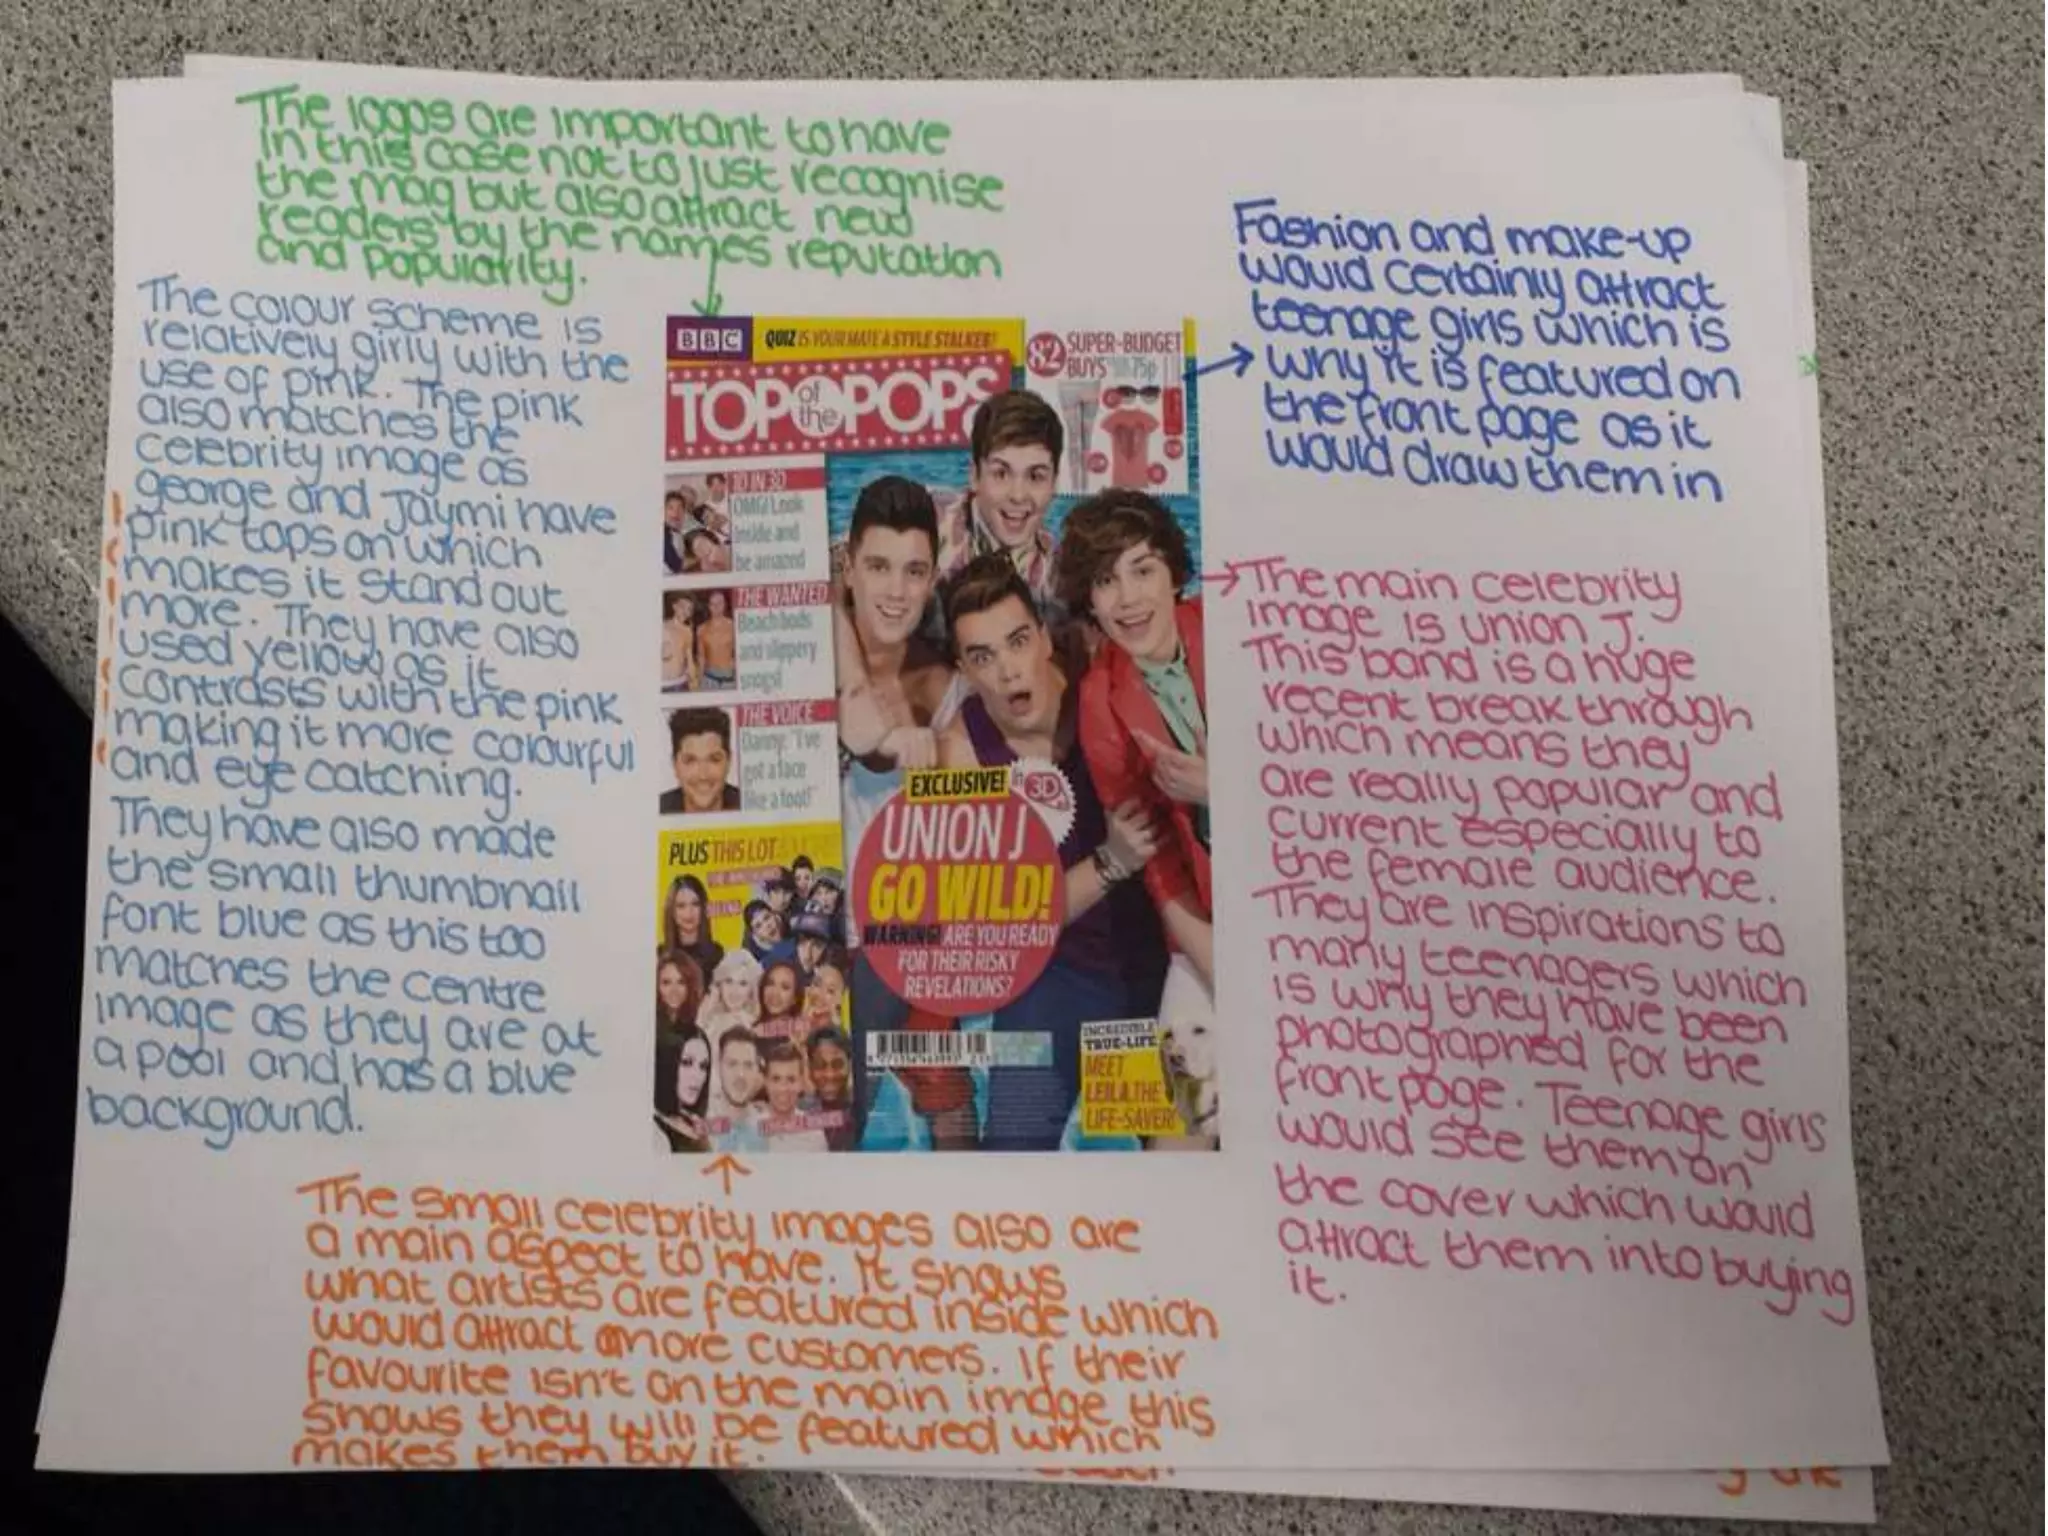 The logos are important to have
in this case not to just recognise
the mag but also attract new
readers by the names reputation
and popularity.
The colour scheme is
relatively girly with the
use of pink. The pink
also matches the
celebrity image as
george and Jaymi have
pink tops on which
makes it stand out
more. They have also
used yellow as it
contrasts with the pink
making it more colourful
and eye catching.
They have also made
the small thumbnail
font blue as this too
matches the centre
image as they are at
a pool and has a blue
background.
BBC
QUIZ IS YOUR MATE A STYLE STALKER?
TOP of the POPS
82 SUPER-BUDGET
BUYS 75p
1D IN 3D
OMG! Look
inside and
be amazed
THE WANTED
Beach bods
and slippery
snogs!
THE VOICE
Danny: "I've
got a face
like a foot!"
PLUS THIS LOT
EXCLUSIVE!
in 3D
UNION J
GO WILD!
WARNING! ARE YOU READY
FOR THEIR RISKY
REVELATIONS?
INCREDIBLE
TRUE-LIFE
MEET
LEILA THE
LIFE-SAVER!
Fashion and make-up
would certainly attract
teenage girls which is
why it is featured on
the front page as it
would draw them in
The main celebrity
image is union J.
This band is a huge
recent break through
which means they
are really popular and
current especially to
the female audience.
They are inspirations to
many teenagers which
is why they have been
photographed for the
front page. Teenage girls
would see them on
the cover which would
attract them into buying
it.
The small celebrity images also are
a main aspect to have. It shows
what artists are featured inside which
would attract more customers. If their
favourite isn't on the main image this
shows they will be featured which
makes them buy it.